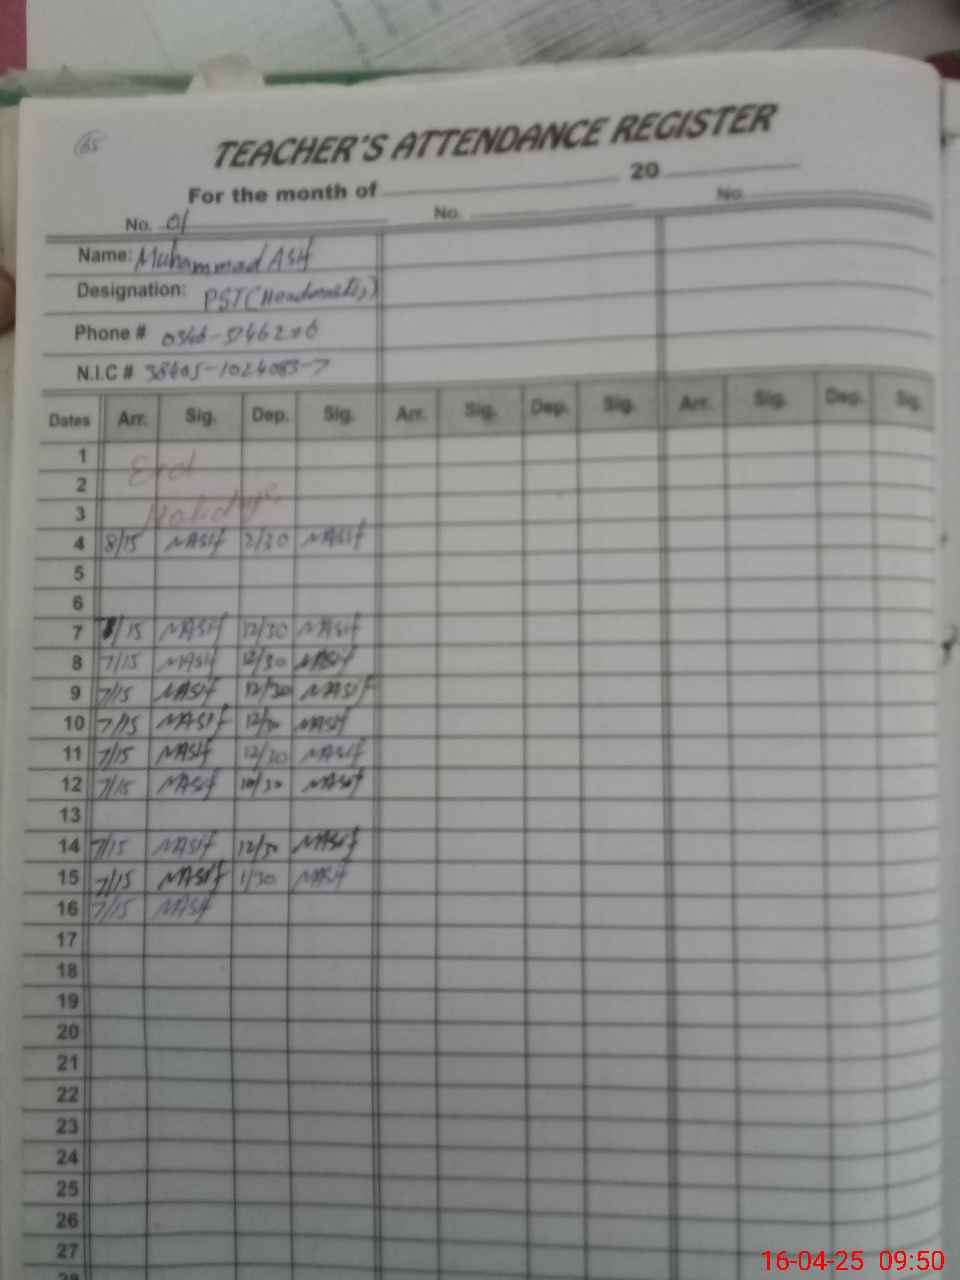 65
TEACHER'S ATTENDANCE REGISTER
For the month of 20
No. 01 No. No.
Name: Muhammad Asif
Designation: PST (Headmaster)
Phone #
N.I.C #
Dates Arr. Sig. Dep. Sig. Arr. Sig. Dep. Sig. Arr. Sig. Dep. Sig.
1 Eid
2
3 Holidays
4 8/15 MASIF 2/30 MASIF
5
6
7 /15 MASIF 12/30 MASIF
8 7/15 MASIF 12/30 MASIF
9 7/15 MASIF 12/30 MASIF
10 7/15 MASIF 12/30 MASIF
11 7/15 MASIF 12/30 MASIF
12 7/15 MASIF 10/30 MASIF
13
14 7/15 MASIF 12/30 MASIF
15 7/15 MASIF 1/30 MASIF
16 7/15 MASIF
17
18
19
20
21
22
23
24
25
26
27
28
16-04-25 09:50